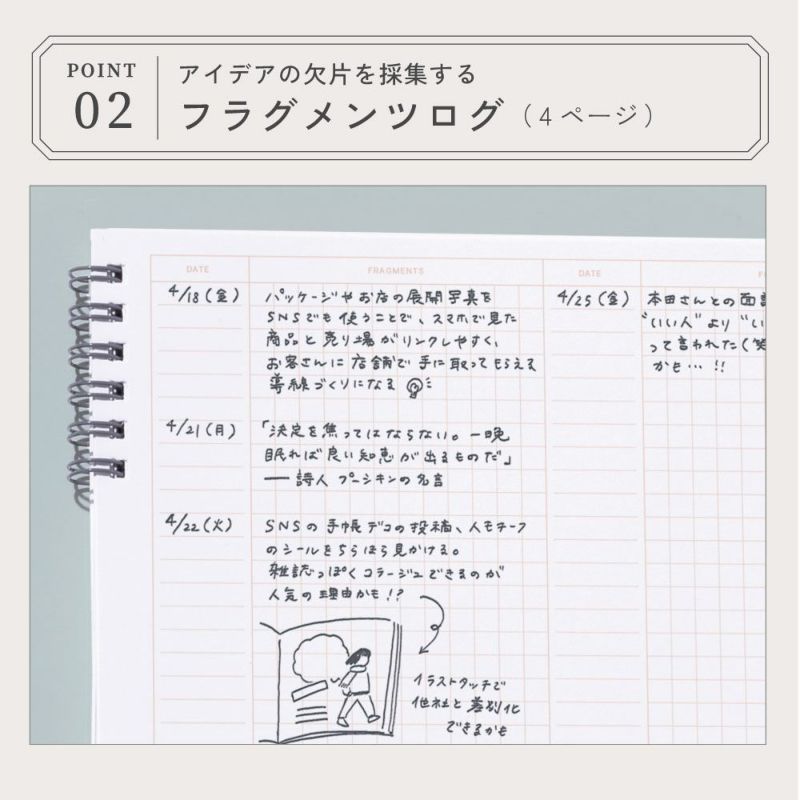 POINT
02
アイデアの欠片を採集する
フラグメンツログ（4ページ）
DATE
FRAGMENTS
DATE
4/18（金）
パッケージやお店の展開写真を
SNSでも使うことで、スマホで見た
商品と売り場がリンクしやすく、
お客さんに店舗で手に取ってもらえる
導線づくりになる
4/21（月）
「決定を焦ってはならない。一晩
眠れば良い知恵が出るものだ」
― 詩人 プーシキンの名言
4/22（火）
SNSの手帳デコの投稿、人モチーフ
のシールをちらほら見かける。
雑誌っぽくコラージュできるのが
人気の理由かも！？
イラストタッチで
他社と差別化
できるかも
4/25（金）
本田さんとの面
“いい人”より“い
って言われた（笑
かも…！！